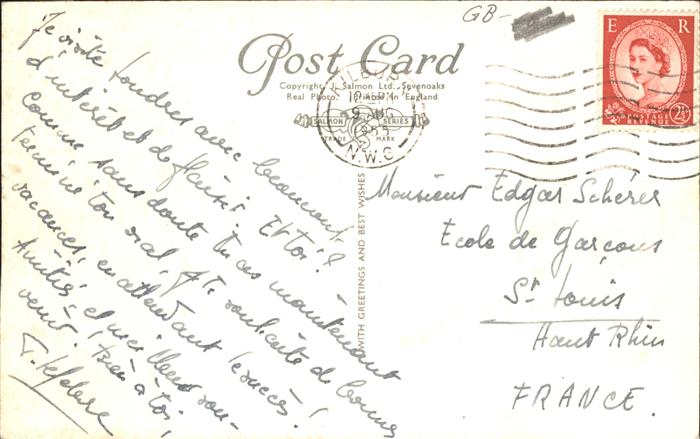 GB-
E R
POSTAGE REVENUE
2½D
Post Card
Copyright J. Salmon Ltd., Sevenoaks
Real Photo. Printed in England
SALMON SERIES
TRADE MARK
N.W.6
WITH GREETINGS AND BEST WISHES
Je visite Londres avec beaucoup
d'intérêt et de plaisir. Et toi?
Comme sans doute tu as maintenant
terminé ton oral, je te souhaite de bonnes
vacances, en attendant le succès!
Amitiés et meilleur sou-
venir. Bien à toi,
Monsieur Edgar Schérer
Ecole de Garçons
St Louis
Haut Rhin
FRANCE.